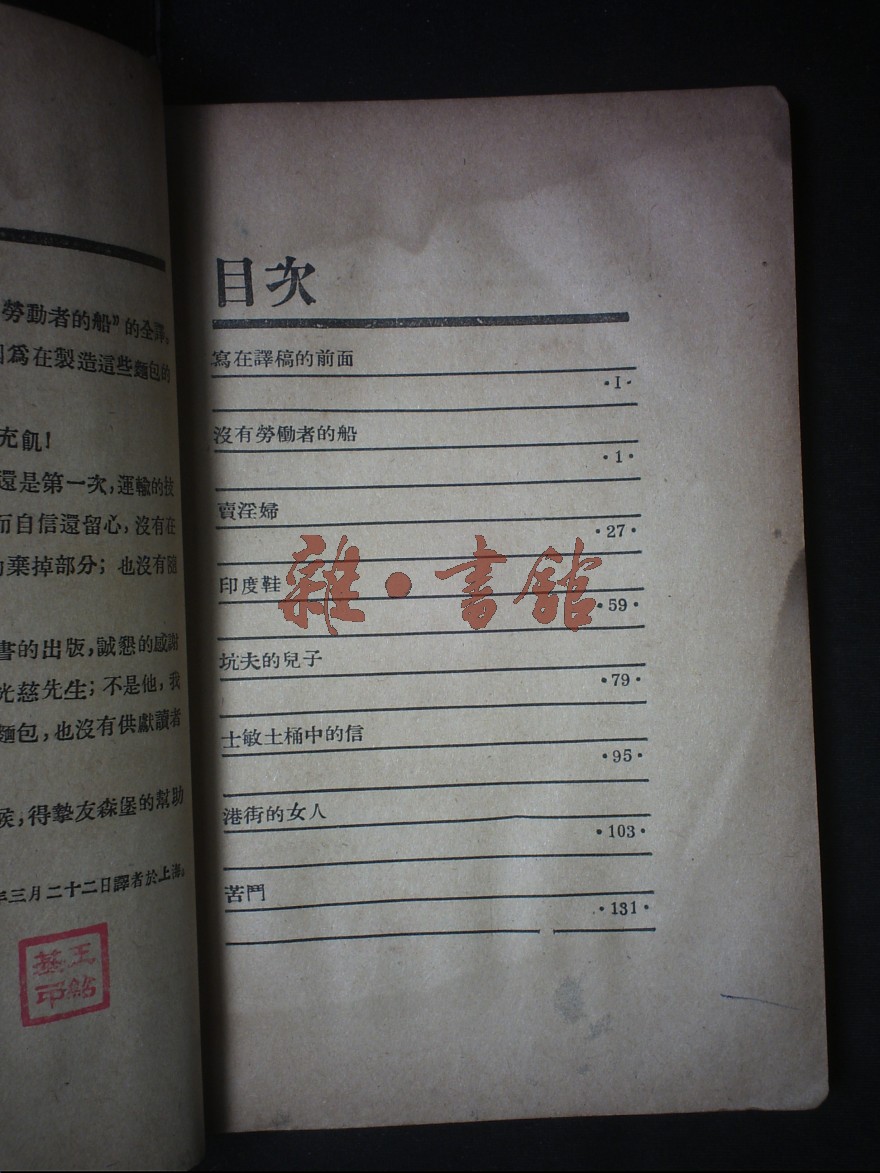 勞動者的船”的全譯,
因爲在製造這些麵包的
充飢!
還是第一次,運輸的技
而自信還留心,沒有在
棄掉部分;也沒有隨
書的出版,誠懇的感謝
光慈先生;不是他,我
麵包,也沒有供獻讀者
,得摯友森堡的幫助
年三月二十二日譯者於上海。
王
印
目次
寫在譯稿的前面
·I·
沒有勞働者的船
·1·
賣淫婦
·27·
印度鞋
·59·
坑夫的兒子
·79·
士敏土桶中的信
·95·
港街的女人
·103·
苦鬥
·131·
雜·書館